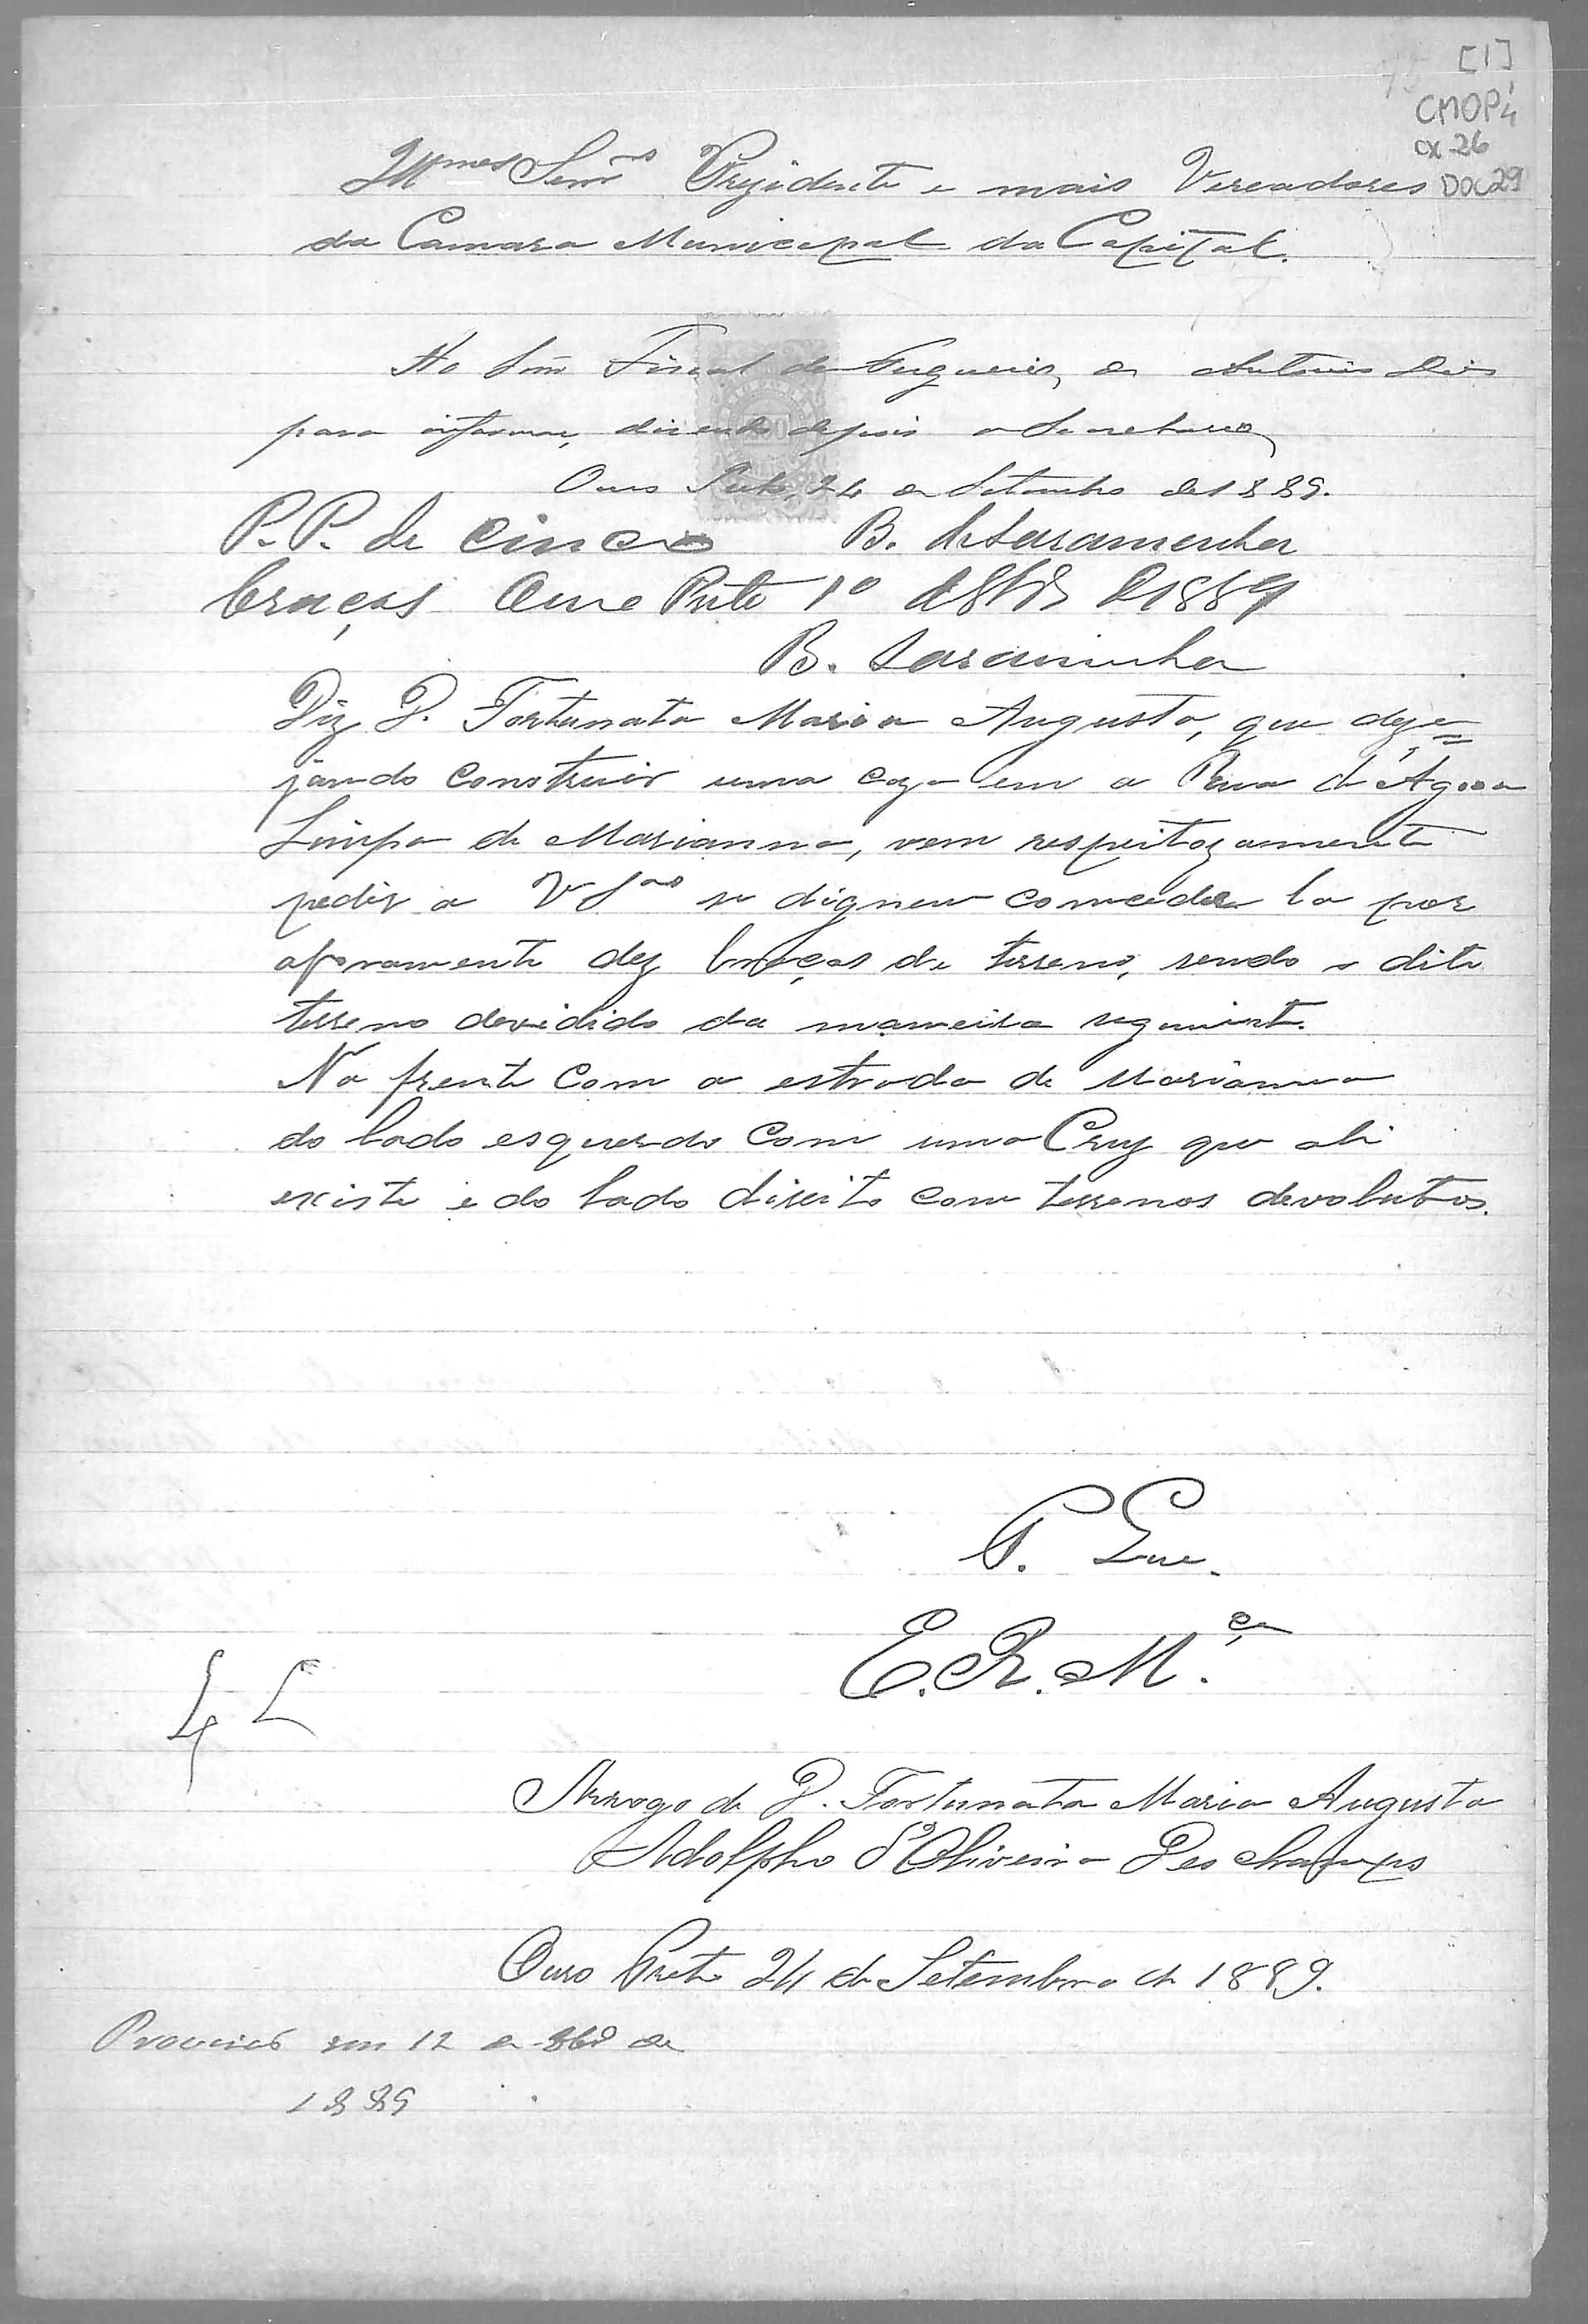 [1]
CMOP
cx 26
DOC 29
Illmos Senrs Prezidente e mais Vereadores
da Camara Municipal da Capital.
Ao Snr Fiscal da Freguezia de Antonio Dias
para informar, dizendo depois o Secretario
Ouro Preto, 24 de Setembro de 1889.
P. P. de cinco B. de Saramenha
braças Ouro Preto 1º de 8bro de 1889
B. Saramenha
Diz D. Fortunata Maria Augusta, que deze=
jando construir uma caza em a Rua d'Agoa
Limpa de Marianna, vem respeitozamente
pedir a V Sas se dignem conceder la por
aforamento dez braças de terreno, sendo o dito
terreno devidido da maneira seguinte.
Na frente com a estrada de Marianna
do lado esquerdo com uma Cruz que ali
existe e do lado direito com terrenos devolutos.
E. R. M.ce
Arrogo de D. Fortunata Maria Augusta
Adolpho d'Oliveira Deschamps
Ouro Preto 24 de Setembro de 1889.
em 12 de 8bro de
1889